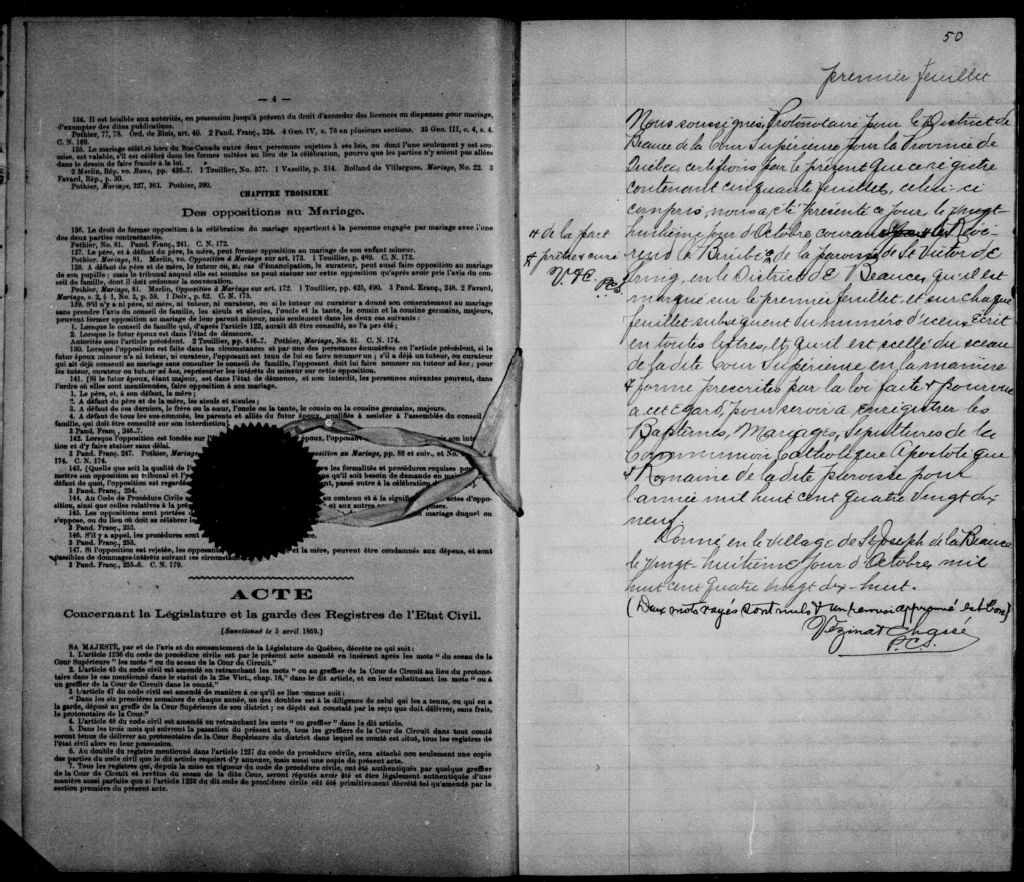 — 4 —
134. Il est loisible aux autorités, en possession jusqu'à présent du droit d'accorder des licences ou dispenses pour mariage,
d'exempter des dites publications.
Pothier, 77, 78. Ord. de Blois, art. 40. 2 Pand. Franç., 324. 4 Geo. IV, c. 76 en plusieurs sections. 25 Geo. III, c. 4, s. 4.
C. N. 169.
135. Le mariage célébré hors du Bas-Canada entre deux personnes sujettes à ses lois, ou dont l'une seulement y est sou-
mise, est valable, s'il est célébré dans les formes usitées au lieu de la célébration, pourvu que les parties n'y soient pas allées
dans le dessin de faire fraude à la loi.
2 Merlin, Rép. vo. Bans, pp. 436-7. 1 Toullier, No. 577. 1 Vazeille, p. 314. Rolland de Villargues. Mariage, No. 22. 3
Favard, Rép., p. 30.
Pothier, Mariage, 327, 361. Pothier, 390.
CHAPITRE TROISIEME
Des oppositions au Mariage.
136. Le droit de former opposition à la célébration du mariage appartient à la personne engagée par mariage avec l'une
des deux parties contractantes.
Pothier, No. 81. Pand. Franç., 241. C. N. 172.
137. Le père, et à défaut du père, la mère, peut former opposition au mariage de son enfant mineur.
Pothier. Mariage, 81. Merlin, vo. Opposition à Mariage sur art. 173. 1 Toullier, p. 489. C. N. 173.
138. A défaut de père et de mère, le tuteur, ou, en cas d'émancipation, le curateur, peut aussi faire opposition au mariage
de son pupille; mais le tribunal auquel elle est soumise ne peut statuer sur cette opposition qu'après avoir pris l'avis du con-
seil de famille, dont il doit ordonner la convocation.
Pothier, Mariage, 81. Merlin, Opposition à Mariage sur art. 172. 1 Toullier, pp. 425, 490. 3 Pand. Franç., 248. 2 Favard,
Mariage, s. 2, § 1, No. 3, p. 59. 1 Delv., p. 62. C. N. 175.
139. S'il n'y a ni père, ni mère, ni tuteur, ni curateur, ou si le tuteur ou curateur a donné son consentement au mariage
sans prendre l'avis du conseil de famille, les aïeuls et aïeules, l'oncle et la tante, le cousin et la cousine germains, majeurs,
peuvent former opposition au mariage de leur parent mineur, mais seulement dans les deux cas suivants :
1. Lorsque le conseil de famille qui, d'après l'article 122, aurait dû être consulté, ne l'a pas été;
2. Lorsque le futur époux est dans l'état de démence.
Autorités sous l'article précédent. 2 Toullier, pp. 446-7. Pothier, Mariage, No. 81. C. N. 174.
130. Lorsque opposition est faite dans les circonstances et par une des personnes énumérées en l'article précédent, si le
futur époux mineur n'a ni tuteur, ni curateur, l'opposant est tenu de lui en faire nommer un; s'il a déjà un tuteur, ou curateur
qui ait déjà consenti au mariage sans consulter le conseil de famille, l'opposant doit lui faire nommer un tuteur ad hoc; pour
les tuteur, curateur ou tuteur ad hoc, représenter les intérêts du mineur sur cette opposition.
141. [Si le futur époux, étant majeur, est dans l'état de démence, et non interdit, les personnes suivantes peuvent, dans
l'ordre où elles sont mentionnées, faire opposition à son mariage.
1. Le père, et, à son défaut, la mère;
2. A défaut du père et de la mère, les aïeuls et aïeules;
3. A défaut de ces derniers, le frère ou la sœur, l'oncle ou la tante, le cousin ou la cousine germains, majeurs.
4. A défaut de tous les sus-nommés, les parents et alliés du futur époux, qualifiés à assister à l'assemblée du conseil de
famille, qui doit être consulté sur son interdiction]
3 Pand. Franç., 246-7.
142. Lorsque l'opposition est fondée sur époux, l'opposant son inter-
tion et d'y faire statuer sans délai.
3 Pand. Franç. 247. Pothier, Mariage position au Mariage, pp. 88 et suiv., et No.
174. C. N. 174.
143. [Quelle que soit la qualité de l' les formalités et procédures requises pour
mettre son opposition au tribunal et l'y qu'il soit besoin de demande en
défaut de quoi, l'opposition est regardée passé outre à la célébration
3 Pand. Franç., 254.
144. Au Code de Procédure Civile au contenu et à la signification actes d'oppo-
sition, ainsi que celles relatives à la et aux autres
145. Les oppositions sont portées mariage duquel on
s'oppose, ou du lieu où doit se célébrer le
3 Pand. Franç., 253.
146. S'il y a appel, les procédures sont
3 Pand. Franç., 253.
147. Si l'opposition est rejetée, les opposants et la mère, peuvent être condamnés aux dépens, et sont
passibles de dommages-intérêts suivant les circonstances
3 Pand. Franç., 255-6. C. N. 179.
ACTE
Concernant la Législature et la garde des Registres de l'Etat Civil.
[Sanctionné le 5 avril 1869.]
SA MAJESTE, par et de l'avis et du consentement de la Législature de Québec, décrète ce qui suit:
1. L'article 1236 du code de procédure civile est par le présent acte amendé en insérant après les mots " du sceau de la
Cour Supérieure " les mots " ou du sceau de la Cour de Circuit."
2. L'article 45 du code civil est amendé en retranchant les mots " ou au greffier de la Cour de Circuit au lieu du protono-
taire dans le cas mentionné dans le statut de la 25e Vict., chap. 16," dans le dit article, et en leur substituant les mots " ou à
un greffier de la Cour de Circuit dans le comté."
3 L'article 47 du code civil est amendé de manière à ce qu'il se lise comme suit:
" Dans les six premières semaines de chaque année, un des doubles est à la diligence de celui qui les a tenus, ou qui en a
la garde, déposé au greffe de la Cour Supérieure de son district; ce dépôt est constaté par le reçu que doit délivrer, sans frais,
le protonotaire de la Cour."
4. L'article 48 du code civil est amendé en retranchant les mots " ou greffier " dans le dit article.
5. Dans les trois mois qui suivront la passation du présent acte, tous les greffiers de la Cour de Circuit dans tout comté
seront tenus de délivrer au protonotaire de la Cour Supérieure du district dans lequel ce comté est situé, tous les registres de
l'état civil alors en leur possession.
6. Au double du registre mentionné dans l'article 1237 du code de procédure civile, sera attaché non seulement une copie
des parties du code civil que le dit article requiert d'y annexer, mais aussi une copie du présent acte.
7. Tous les registres qui, depuis la mise en vigueur du code de procédure civile, ont été authentiqués par quelque greffier
de la Cour de Circuit et revêtus du sceau de la dite Cour, seront réputés avoir été et être légalement authentiqués d'une
manière aussi parfaite que si l'article 1236 du dit code de procédure civile eût été primitivement décrété tel qu'amendé par la
section première du présent acte.
50
premier feuillet
Nous soussignés, Protonotaire pour le District de
Beauce de la Cour Supérieure pour la Province de
Québec, certifions par le présent que ce registre
contenant cinquante feuillets, celui-ci
compris, nous a été présenté ce jour, le vingt-
huitième jour d'Octobre courant Révé-
rend de la paroisse de St Victor de
Tring, en le District de Beauce, qu'il est
marqué sur le premier feuillet, et sur chaque
feuillet subséquent du numéro d'iceux Ecrit
en toutes lettres, et qu'il est scellé du sceau
de la dite Cour Supérieure en la manière
& forme prescrites par la loi faite & pourvue
à cet égard, pour servir à Enregistrer les
Baptêmes, Mariages, Sépultures de la
Communion Catholique Apostolique
& Romaine de la dite paroisse pour
l'année mil huit cent quatre vingt dix
neuf.
Donné en le village de St Joseph de la Beauce
le vingt-huitième jour d'Octobre mil
huit cent quatre vingt dix-huit.
(Deux mots rayés sont nuls & un renvoi approuvé est bon)
Vézina &
P.C.S.
# de la part
# prêtre & curé
V. & C. P.C.S.